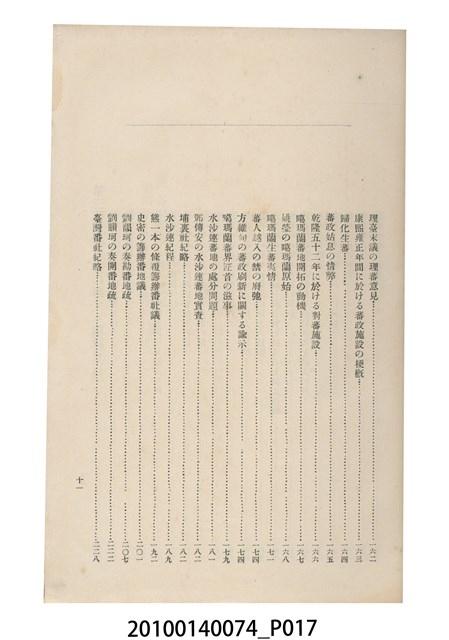 理臺末議の理蕃意見……一六二
康熙雍正年間に於ける蕃政施設の梗概……一六三
歸化生蕃……一六四
蕃政姑息の情弊……一六五
乾隆五十二年に於ける對蕃施設……一六六
噶瑪蘭蕃地開拓の動機……一六七
姚瑩の噶瑪蘭原始……一六八
噶瑪蘭生蕃夷情……一七一
蕃人越入の禁の廢弛……一七四
方維甸の蕃政刷新に關する諭示……一七四
噶瑪蘭蕃界匪首の滋事……一七九
水沙連蕃地の處分問題……一八一
鄧傳安の水沙連蕃地實査……一八二
埔裏社紀略……一八二
水沙連紀程……一八九
熊一本の條覆籌辦番社議……一九二
史密の籌辦番地議……二〇一
劉韻珂の奏勘番地疏……二〇七
劉韻珂の奏開番地疏……二二二
臺灣番社紀略……二二八
十一
20100140074_P017